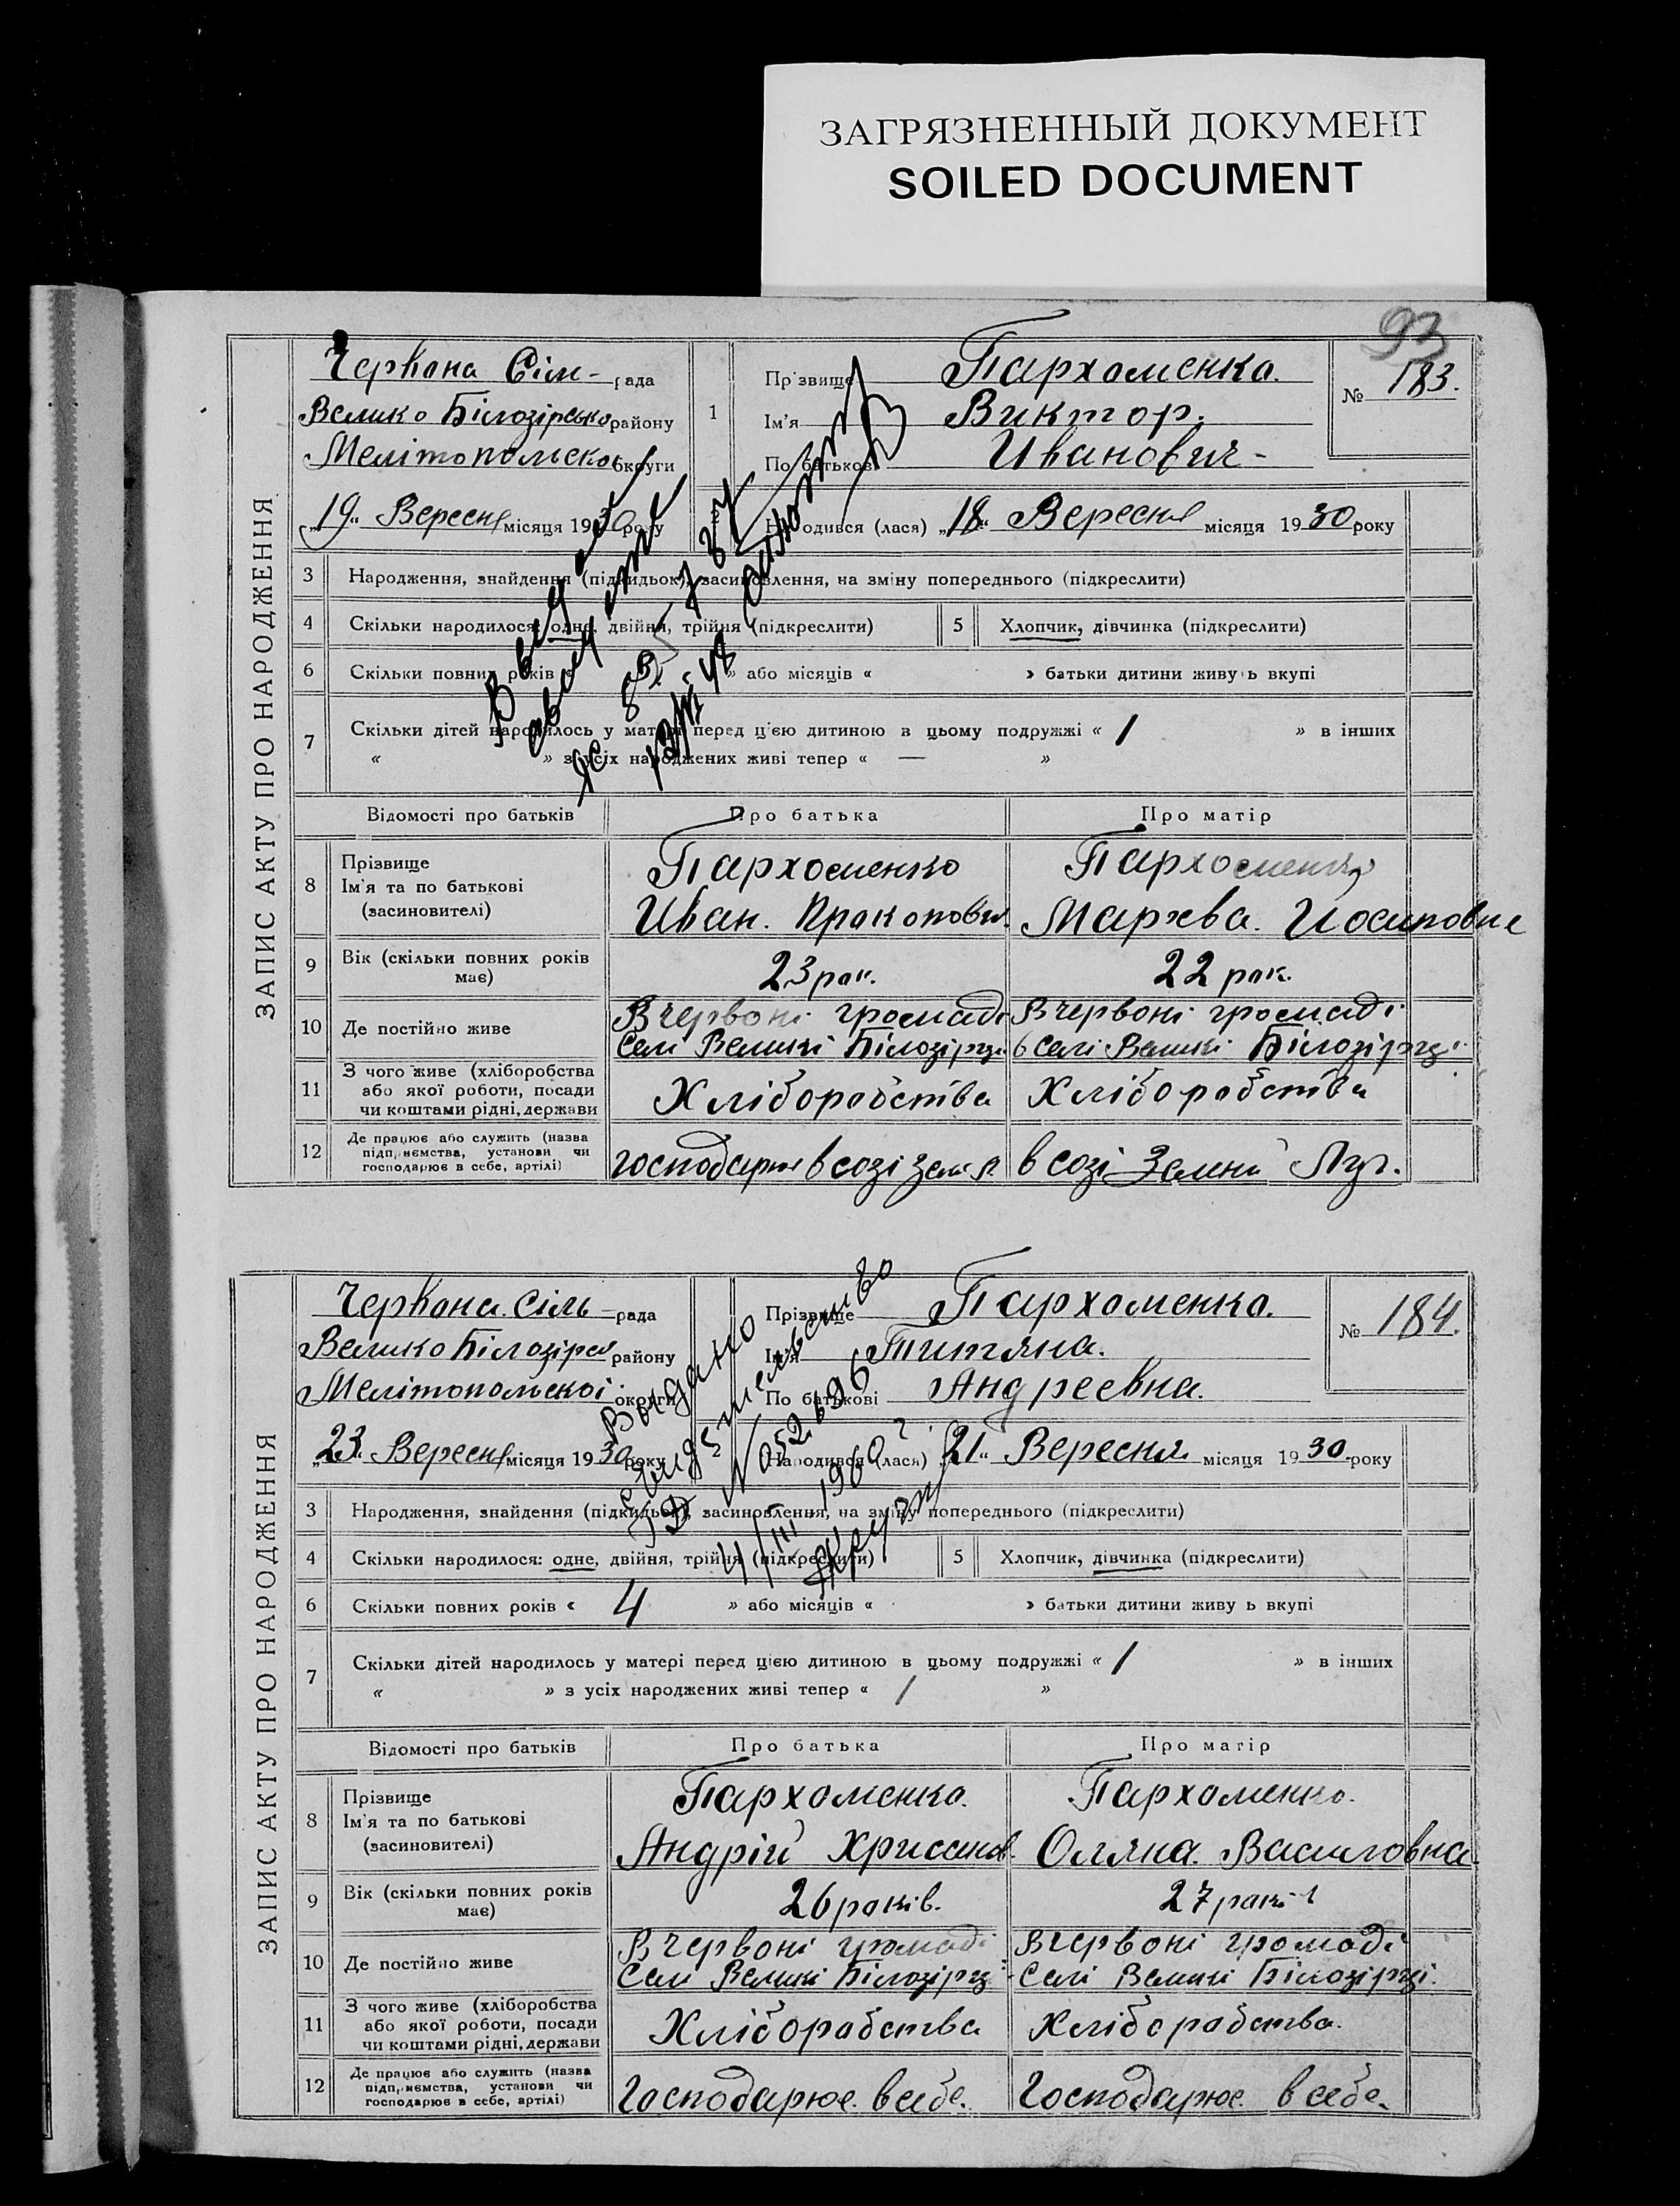 ЗАГРЯЗНЕННЫЙ ДОКУМЕНТ
SOILED DOCUMENT
93
ЗАПИС АКТУ ПРО НАРОДЖЕННЯ
Червона Сіль- рада
Велико Білозірсько району
Мелітопольської округи
1
Прізвище Пархоменко.
Ім'я Виктор.
По батькові Иванович-
№ 183.
„19“ Вересня місяця 1930 року
Народився (лася) „18“ Вересня місяця 1930 року
3 Народження, знайдення (підкидьок), засиновлення, на зміну попереднього (підкреслити)
4 Скільки народилося: одне, двійня, трійня (підкреслити)
5 Хлопчик, дівчинка (підкреслити)
6 Скільки повних років « » або місяців « » батьки дитини живуть вкупі
7 Скільки дітей народилось у матері перед цією дитиною в цьому подружжі « 1 » в інших
« » з усіх народжених живі тепер « — »
Відомості про батьків Про батька Про матір
8 Прізвище
Ім'я та по батькові
(засиновителі)
Пархоменко
Иван. Прокопович.
Пархоменко
Мархва. Иосиповна
9 Вік (скільки повних років має) 23 рок. 22 рок.
10 Де постійно живе
Вчервоні громаді
Селі Великі Білозірці
Вчервоні громаді
Селі Великі Білозірці
11 З чого живе (хліборобства
або якої роботи, посади
чи коштами рідні, держави
Хліборобства Хліборобства
12 Де працює або служить (назва
підприємства, установи чи
господарює в себе, артілі)
господарює в созі Зел. Л. в созі Зелений Луг.
ЗАПИС АКТУ ПРО НАРОДЖЕННЯ
Червона. Сіль рада
Велико Білозірсь району
Мелітопольскої округи
Прізвище Пархоменко.
Ім'я Титяна.
По батькові Андреевна.
№ 184.
„23“ Вересня місяця 1930 року
Народився (лася) „21“ Вересня місяця 1930 року
Выдано
свидетельство
№ 052696
4/III 1960 г.
3 Народження, знайдення (підкидьок), засиновлення, на зміну попереднього (підкреслити)
4 Скільки народилося: одне, двійня, трійня (підкреслити)
5 Хлопчик, дівчинка (підкреслити)
6 Скільки повних років « 4 » або місяців « » батьки дитини живуть вкупі
7 Скільки дітей народилось у матері перед цією дитиною в цьому подружжі « 1 » в інших
« » з усіх народжених живі тепер « 1 »
Відомості про батьків Про батька Про матір
8 Прізвище
Ім'я та по батькові
(засиновителі)
Пархоменко.
Андрій Хрисанов.
Пархоменко.
Оляна. Василовна.
9 Вік (скільки повних років має) 26 років. 27 років
10 Де постійно живе
Вчервоні громаді
Селі Великі Білозірці
Вчервоні громаді
Селі Великі Білозірці.
11 З чого живе (хліборобства
або якої роботи, посади
чи коштами рідні, держави
Хліборобства Хліборобства.
12 Де працює або служить (назва
підприємства, установи чи
господарює в себе, артілі)
Господарює в себе. Господарює в себе.